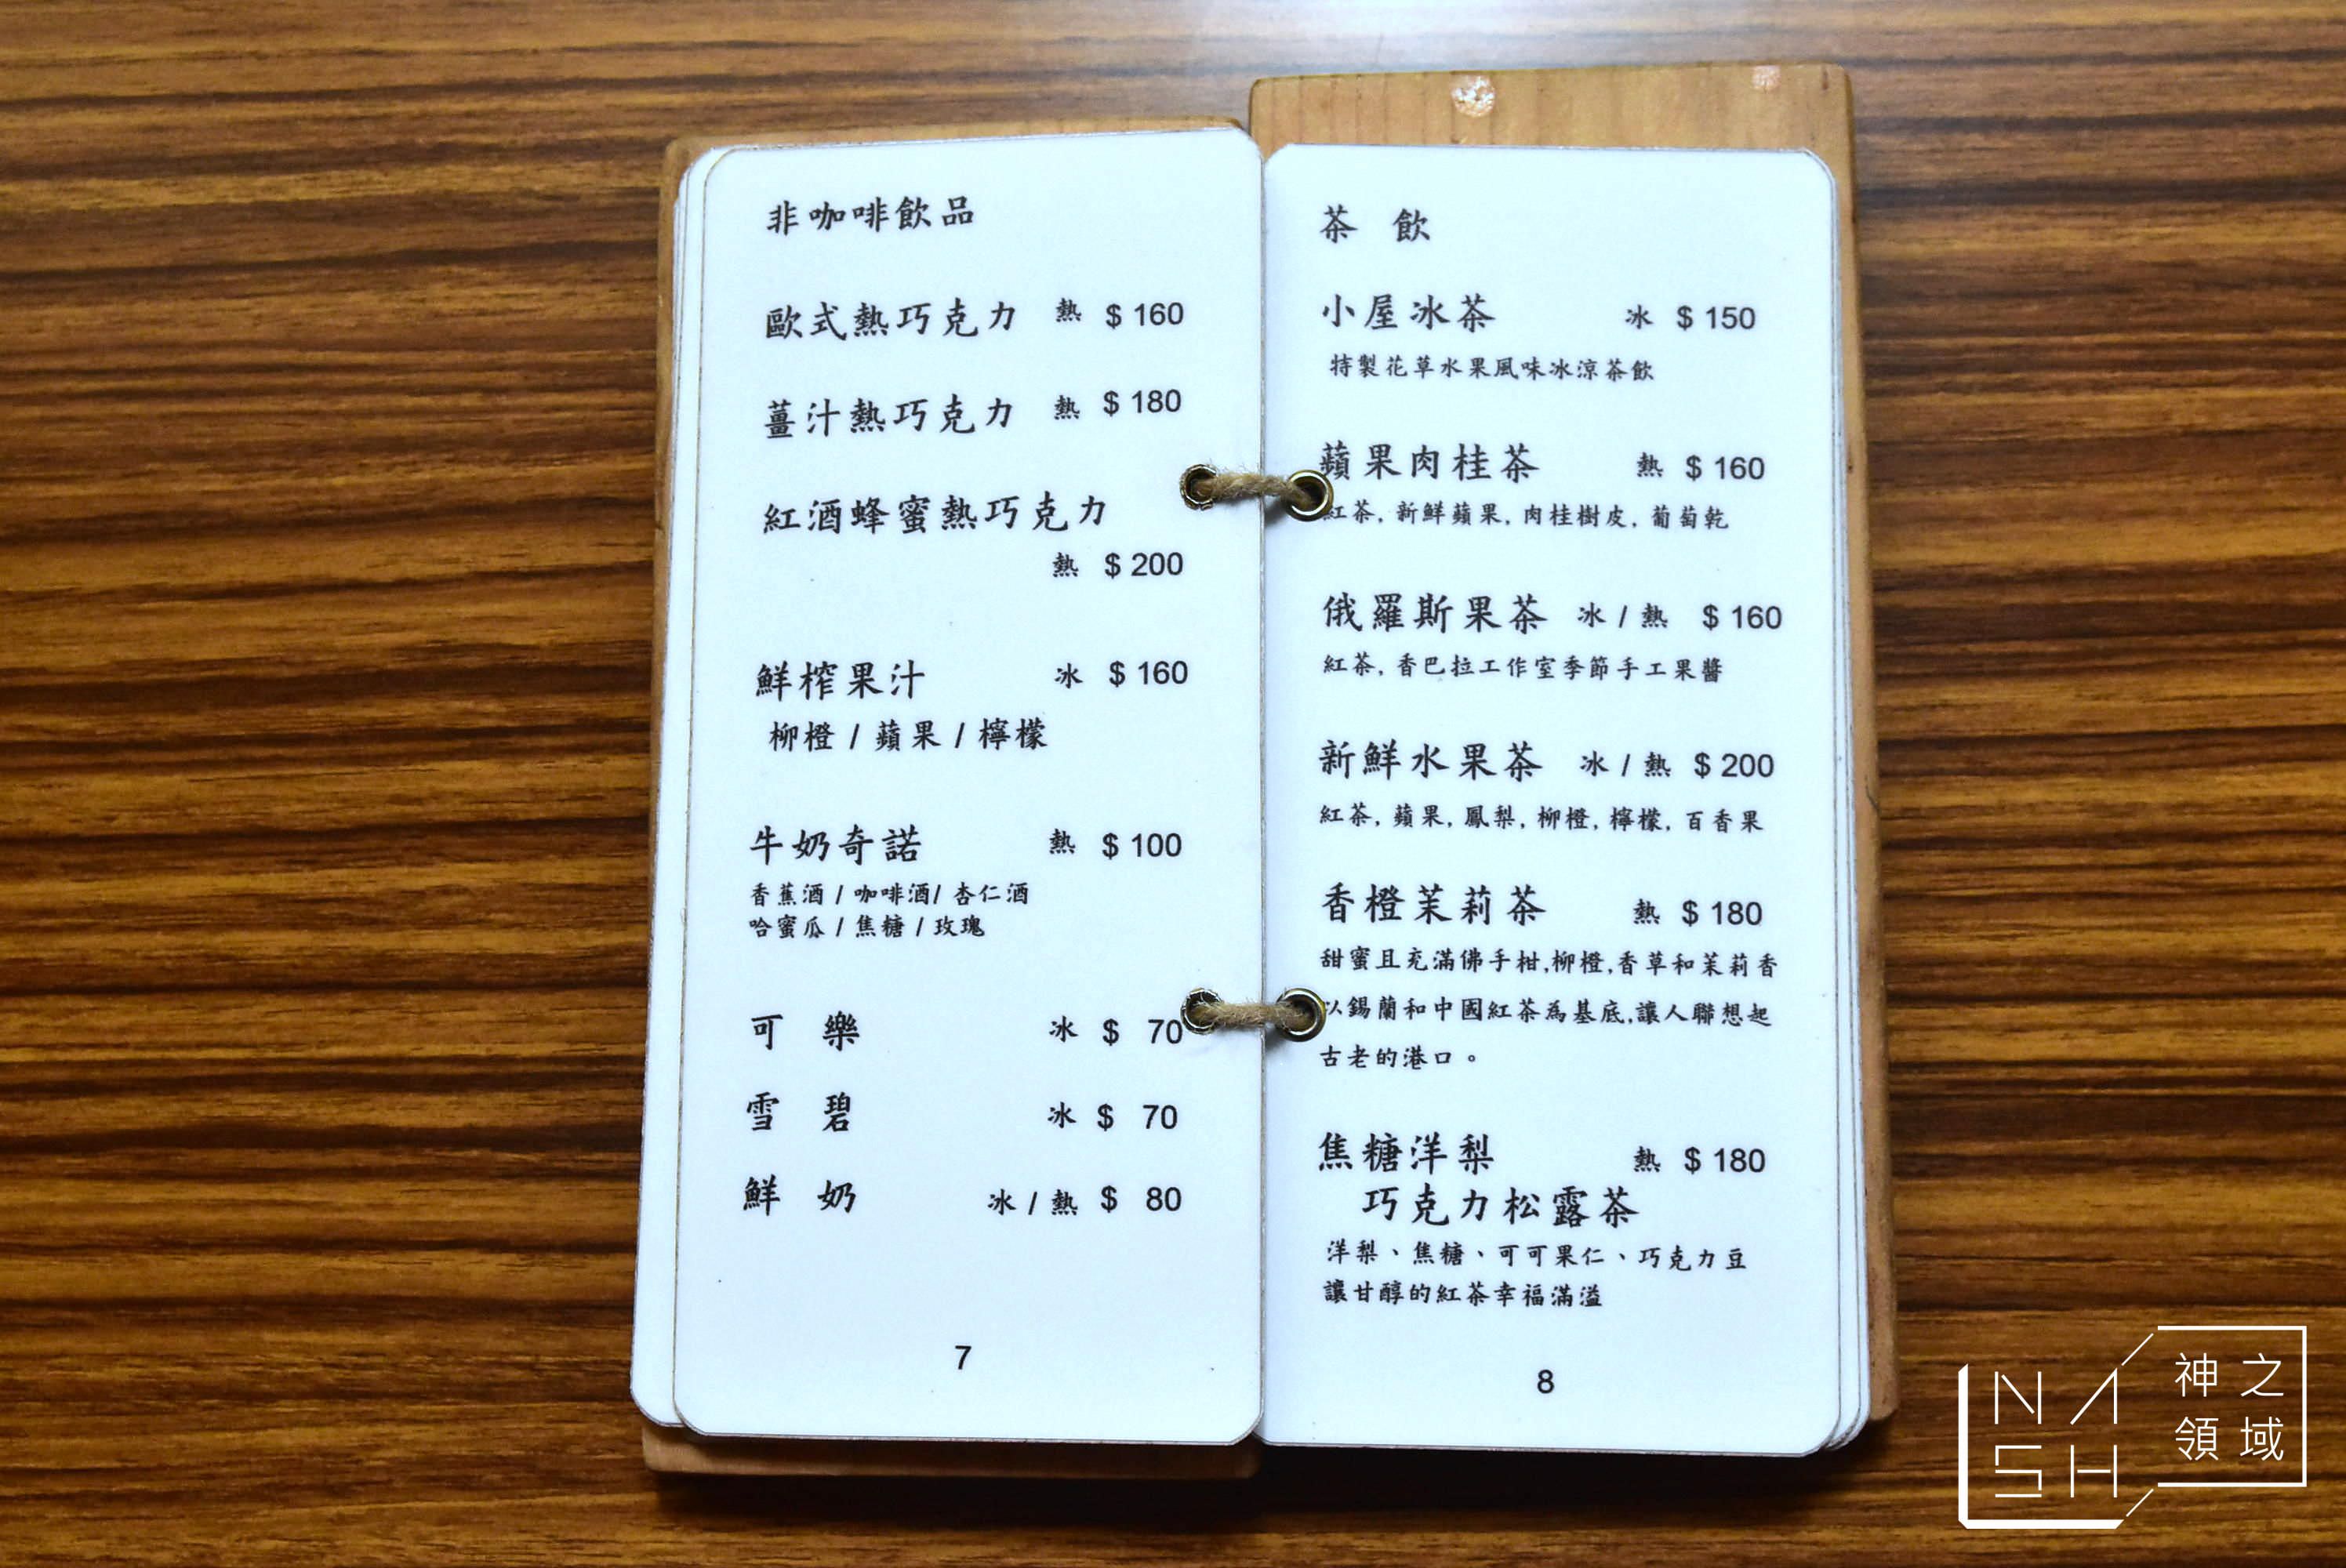 非咖啡飲品
歐式熱巧克力 熱 $ 160
薑汁熱巧克力 熱 $ 180
紅酒蜂蜜熱巧克力
熱 $ 200
鮮榨果汁 冰 $ 160
柳橙 / 蘋果 / 檸檬
牛奶奇諾 熱 $ 100
香蕉酒 / 咖啡酒/ 杏仁酒
哈蜜瓜 / 焦糖 / 玫瑰
可 樂 冰 $ 70
雪 碧 冰 $ 70
鮮 奶 冰 / 熱 $ 80
7
茶 飲
小屋冰茶 冰 $ 150
特製花草水果風味冰涼茶飲
蘋果肉桂茶 熱 $ 160
紅茶, 新鮮蘋果, 肉桂樹皮, 葡萄乾
俄羅斯果茶 冰 / 熱 $ 160
紅茶, 香巴拉工作室季節手工果醬
新鮮水果茶 冰 / 熱 $ 200
紅茶, 蘋果, 鳳梨, 柳橙, 檸檬, 百香果
香橙茉莉茶 熱 $ 180
甜蜜且充滿佛手柑,柳橙,香草和茉莉香
以錫蘭和中國紅茶為基底,讓人聯想起
古老的港口。
焦糖洋梨 熱 $ 180
巧克力松露茶
洋梨、焦糖、可可果仁、巧克力豆
讓甘醇的紅茶幸福滿溢
8
NASH
神之
領域